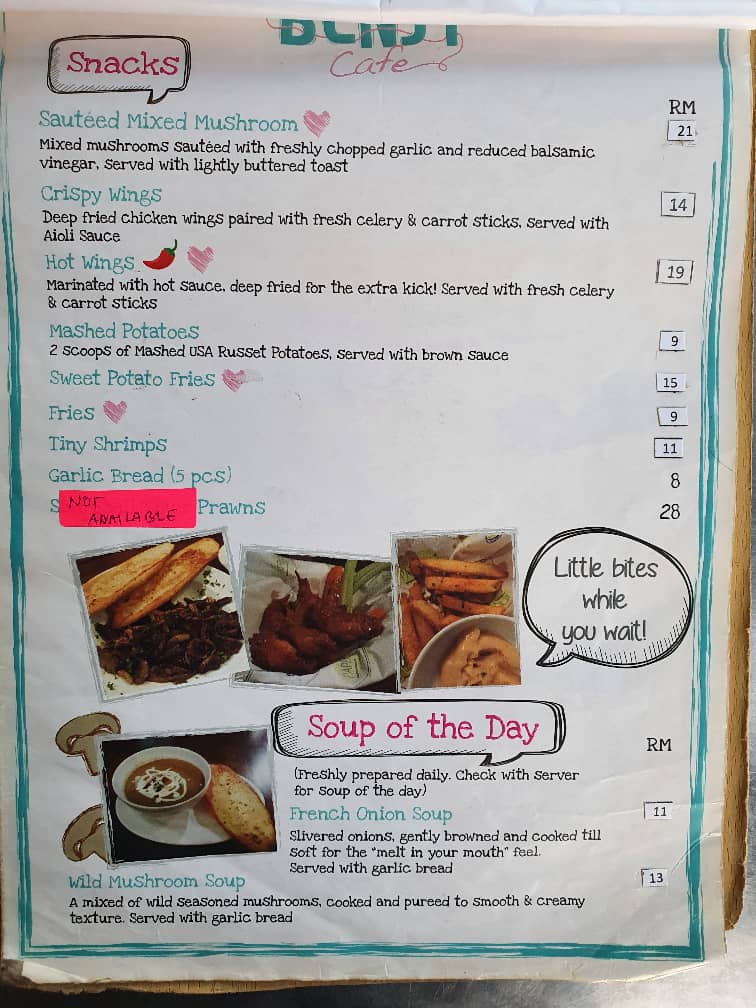 Cafe
Snacks
RM
Sautéed Mixed Mushroom
21
Mixed mushrooms sautéed with freshly chopped garlic and reduced balsamic
vinegar, served with lightly buttered toast
Crispy Wings
14
Deep fried chicken wings paired with fresh celery & carrot sticks, served with
Aioli Sauce
Hot Wings
19
Marinated with hot sauce, deep fried for the extra kick! Served with fresh celery
& carrot sticks
Mashed Potatoes
2 scoops of Mashed USA Russet Potatoes, served with brown sauce
9
Sweet Potato Fries
15
Fries
9
Tiny Shrimps
11
Garlic Bread (5 pcs)
8
NOT
AVAILABLE
Prawns
28
Little bites
while
you wait!
Soup of the Day
RM
(Freshly prepared daily. Check with server
for soup of the day)
French Onion Soup
11
Slivered onions, gently browned and cooked till
soft for the "melt in your mouth" feel.
Served with garlic bread
Wild Mushroom Soup
13
A mixed of wild seasoned mushrooms, cooked and pureed to smooth & creamy
texture. Served with garlic bread